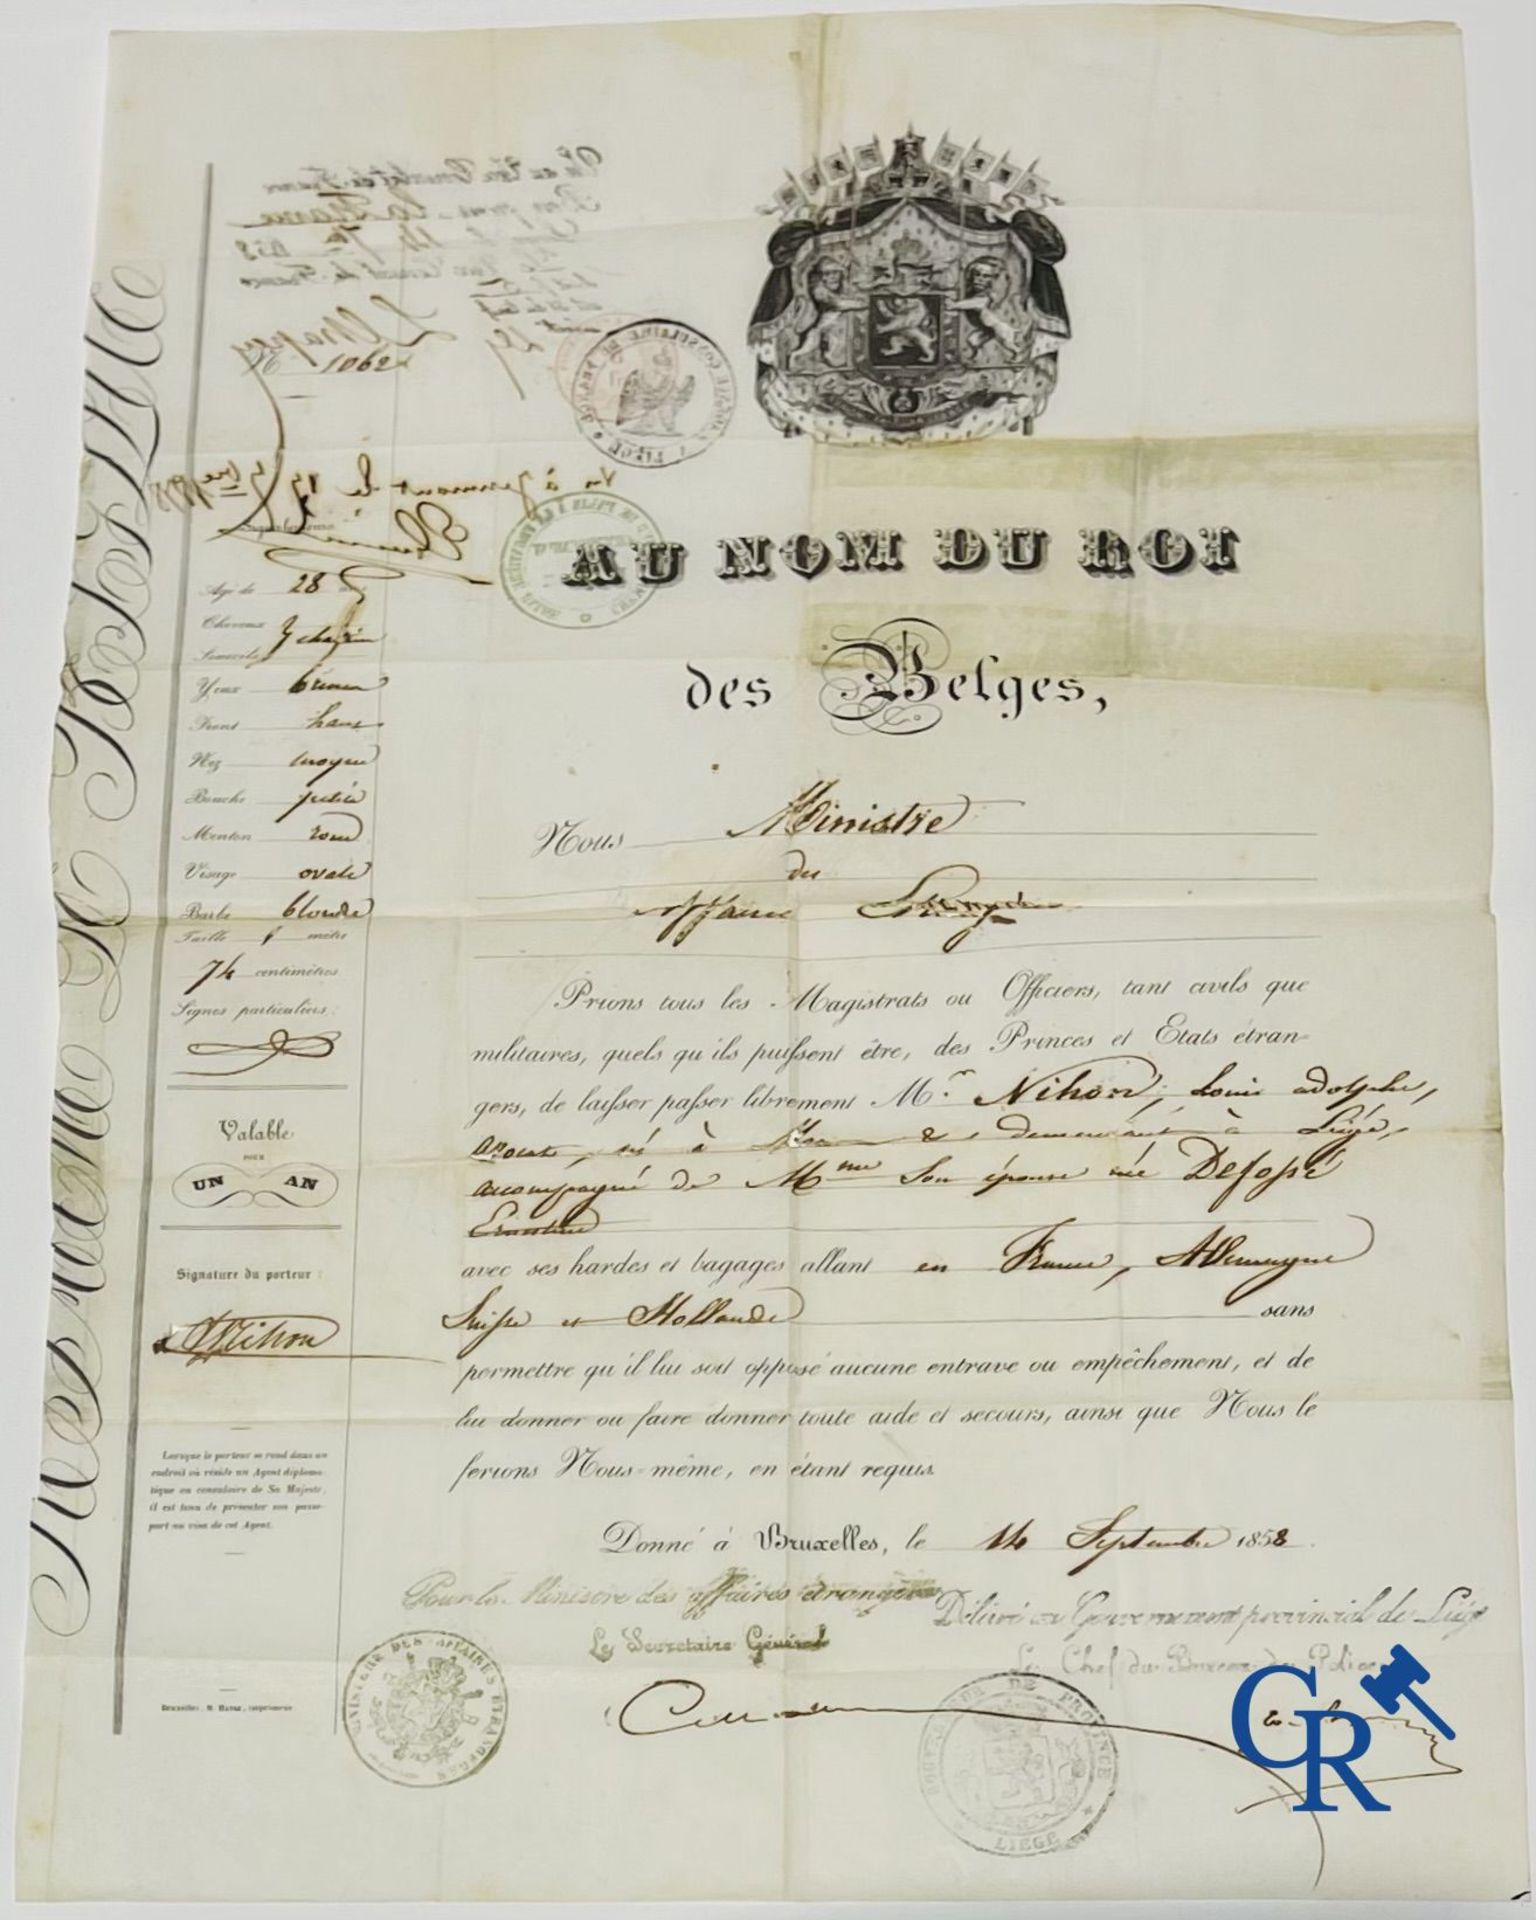 AU NOM DU ROI
des Belges,
Nous Ministre
des
Affaires Etrangères
Prions tous les Magistrats ou Officiers, tant civils que
militaires, quels qu'ils puissent être, des Princes et Etats étran-
gers, de laisser passer librement Mr. Nihon, Louis adolphe,
né à demeurant à Liège,
accompagné de Mme Son épouse née Defossé
Ernestine
avec ses hardes et bagages allant en France, Allemagne
Suisse et Hollande sans
permettre qu'il lui soit opposé aucune entrave ou empêchement, et de
lui donner ou faire donner toute aide et secours, ainsi que Nous le
ferions Nous-même, en étant requis.
Donné à Bruxelles, le 14 Septembre 1858.
Pour le Ministre des affaires étrangères
Le Secretaire Général
Délivré au Gouvernement provincial de Liége
Le Chef du Bureau de Police
MINISTERE DES AFFAIRES ETRANGERES
GOUVERNEUR DE PROVINCE
LIEGE
N° 1062
Agé de 28 ans
Cheveux
Sourcils } chatain
Yeux bruns
Front haut
Nez moyen
Bouche petite
Menton rond
Visage ovale
Barbe blonde
Taille 1 mètre
74 centimètres
Signes particuliers:
Valable
POUR
UN AN
Signature du porteur:
Nihon
Lorsque le porteur se rend dans un
endroit où réside un Agent diploma-
tique ou consulaire de Sa Majesté,
il est tenu de présenter son passe-
port au visa de cet Agent.
Bruxelles, imprimeur
Vu au Consulat de France
Bon pour la France
1858
Consul de France
Vu à Jeumont le 15 7bre 1858
LIEGE
CR